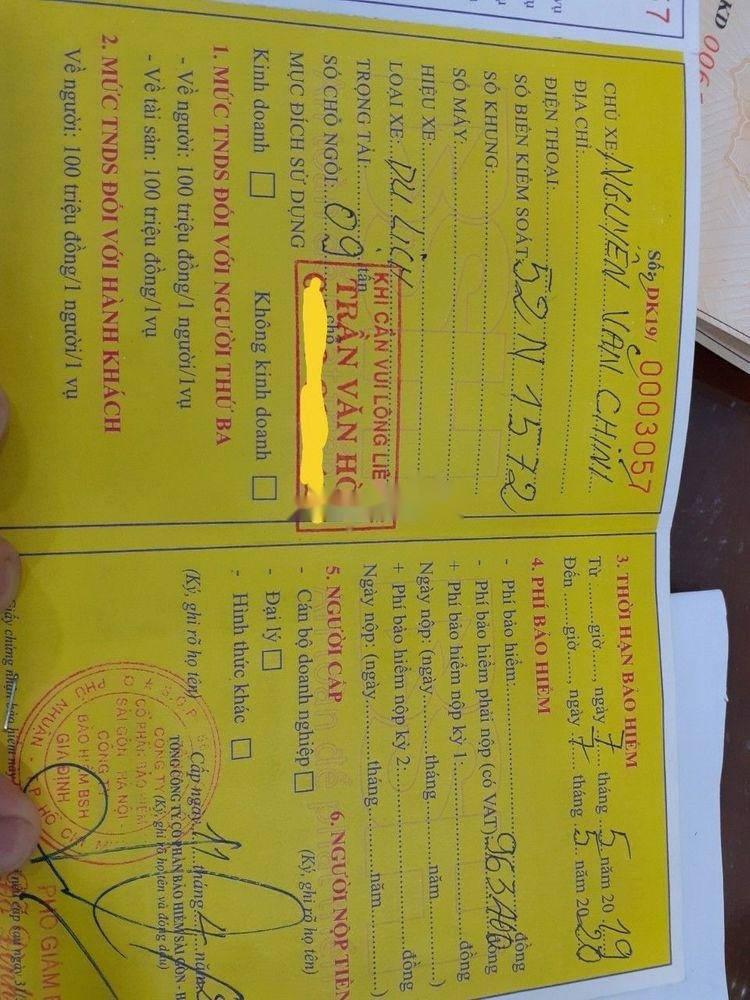 Số: DK19/ 0003057
CHỦ XE: NGUYỄN VĂN CHÍNH
ĐỊA CHỈ:
ĐIỆN THOẠI:
SỐ BIỂN KIỂM SOÁT: 52N 1572
SỐ KHUNG:
SỐ MÁY:
HIỆU XE:
LOẠI XE: DU LỊCH
TRỌNG TẢI: tấn
SỐ CHỖ NGỒI: 09 chỗ
MỤC ĐÍCH SỬ DỤNG
Kinh doanh Không kinh doanh
KHI CẦN VUI LÒNG LIÊ
TRẦN VĂN
1. MỨC TNDS ĐỐI VỚI NGƯỜI THỨ BA
- Về người: 100 triệu đồng/1 người/1vụ
- Về tài sản: 100 triệu đồng/1vụ
2. MỨC TNDS ĐỐI VỚI HÀNH KHÁCH
Về người: 100 triệu đồng/1 người/1 vụ
3. THỜI HẠN BẢO HIỂM
Từ ......giờ....., ngày 7 tháng 5 năm 2019
Đến ......giờ....., ngày 7 tháng 5 năm 2020
4. PHÍ BẢO HIỂM
- Phí bảo hiểm: đồng
- Phí bảo hiểm phải nộp (có VAT) đồng
+ Phí bảo hiểm nộp kỳ 1: đồng
Ngày nộp: (ngày......tháng......năm......)
+ Phí bảo hiểm nộp kỳ 2: đồng
Ngày nộp: (ngày......tháng......năm......)
5. NGƯỜI CẤP
- Cán bộ doanh nghiệp
- Đại lý
- Hình thức khác
(Ký, ghi rõ họ tên)
6. NGƯỜI NỘP TIỀN
(Ký, ghi rõ họ tên)
Cấp ngày 11 tháng 4 năm
TỔNG CÔNG TY CỔ PHẦN BẢO HIỂM SÀI GÒN - H
(Ký, ghi rõ họ tên và đóng dấu)
CÔNG TY
CỔ PHẦN BẢO HIỂM
SÀI GÒN HÀ NỘI
CÔNG TY
BẢO HIỂM BSH
GIA ĐỊNH
PHÓ GIÁM